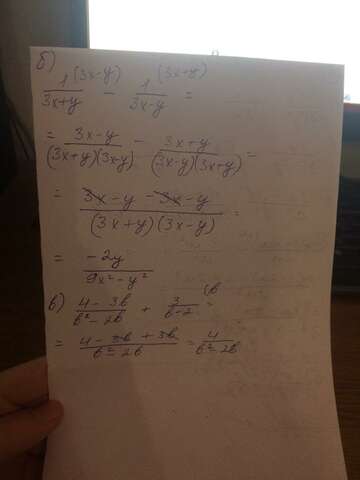 б)
1 (3x-y) / 3x+y - 1 (3x+y) / 3x-y =
= 3x-y / (3x+y)(3x-y) - 3x+y / (3x-y)(3x+y) =
= 3x-y-3x-y / (3x+y)(3x-y) =
= -2y / 9x²-y²
в) 4-3b / b²-2b + 3 (b / b-2 =
= 4-3b+3b / b²-2b = 4 / b²-2b